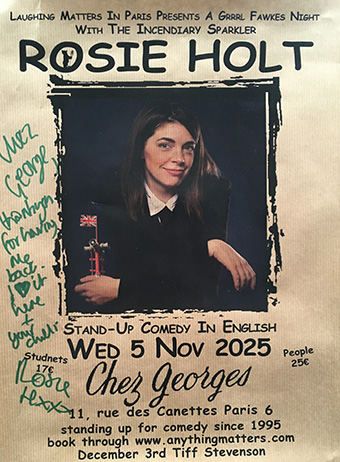 Laughing Matters In Paris Presents A Grrrl Fawkes Night
With The Incendiary Sparkler
ROSIE HOLT
Chez
George
thankyou
for having
me
back.
I ♥ it
here
+
your
Rosie
Stand-Up Comedy In English
Wed 5 Nov 2025
Studnets
17€
People
25€
Chez Georges
11, rue des Canettes Paris 6
standing up for comedy since 1995
book through www.anythingmatters.com
December 3rd Tiff Stevenson